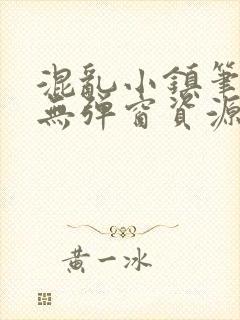 混亂小鎮筆
無彈窗資源
黃一冰